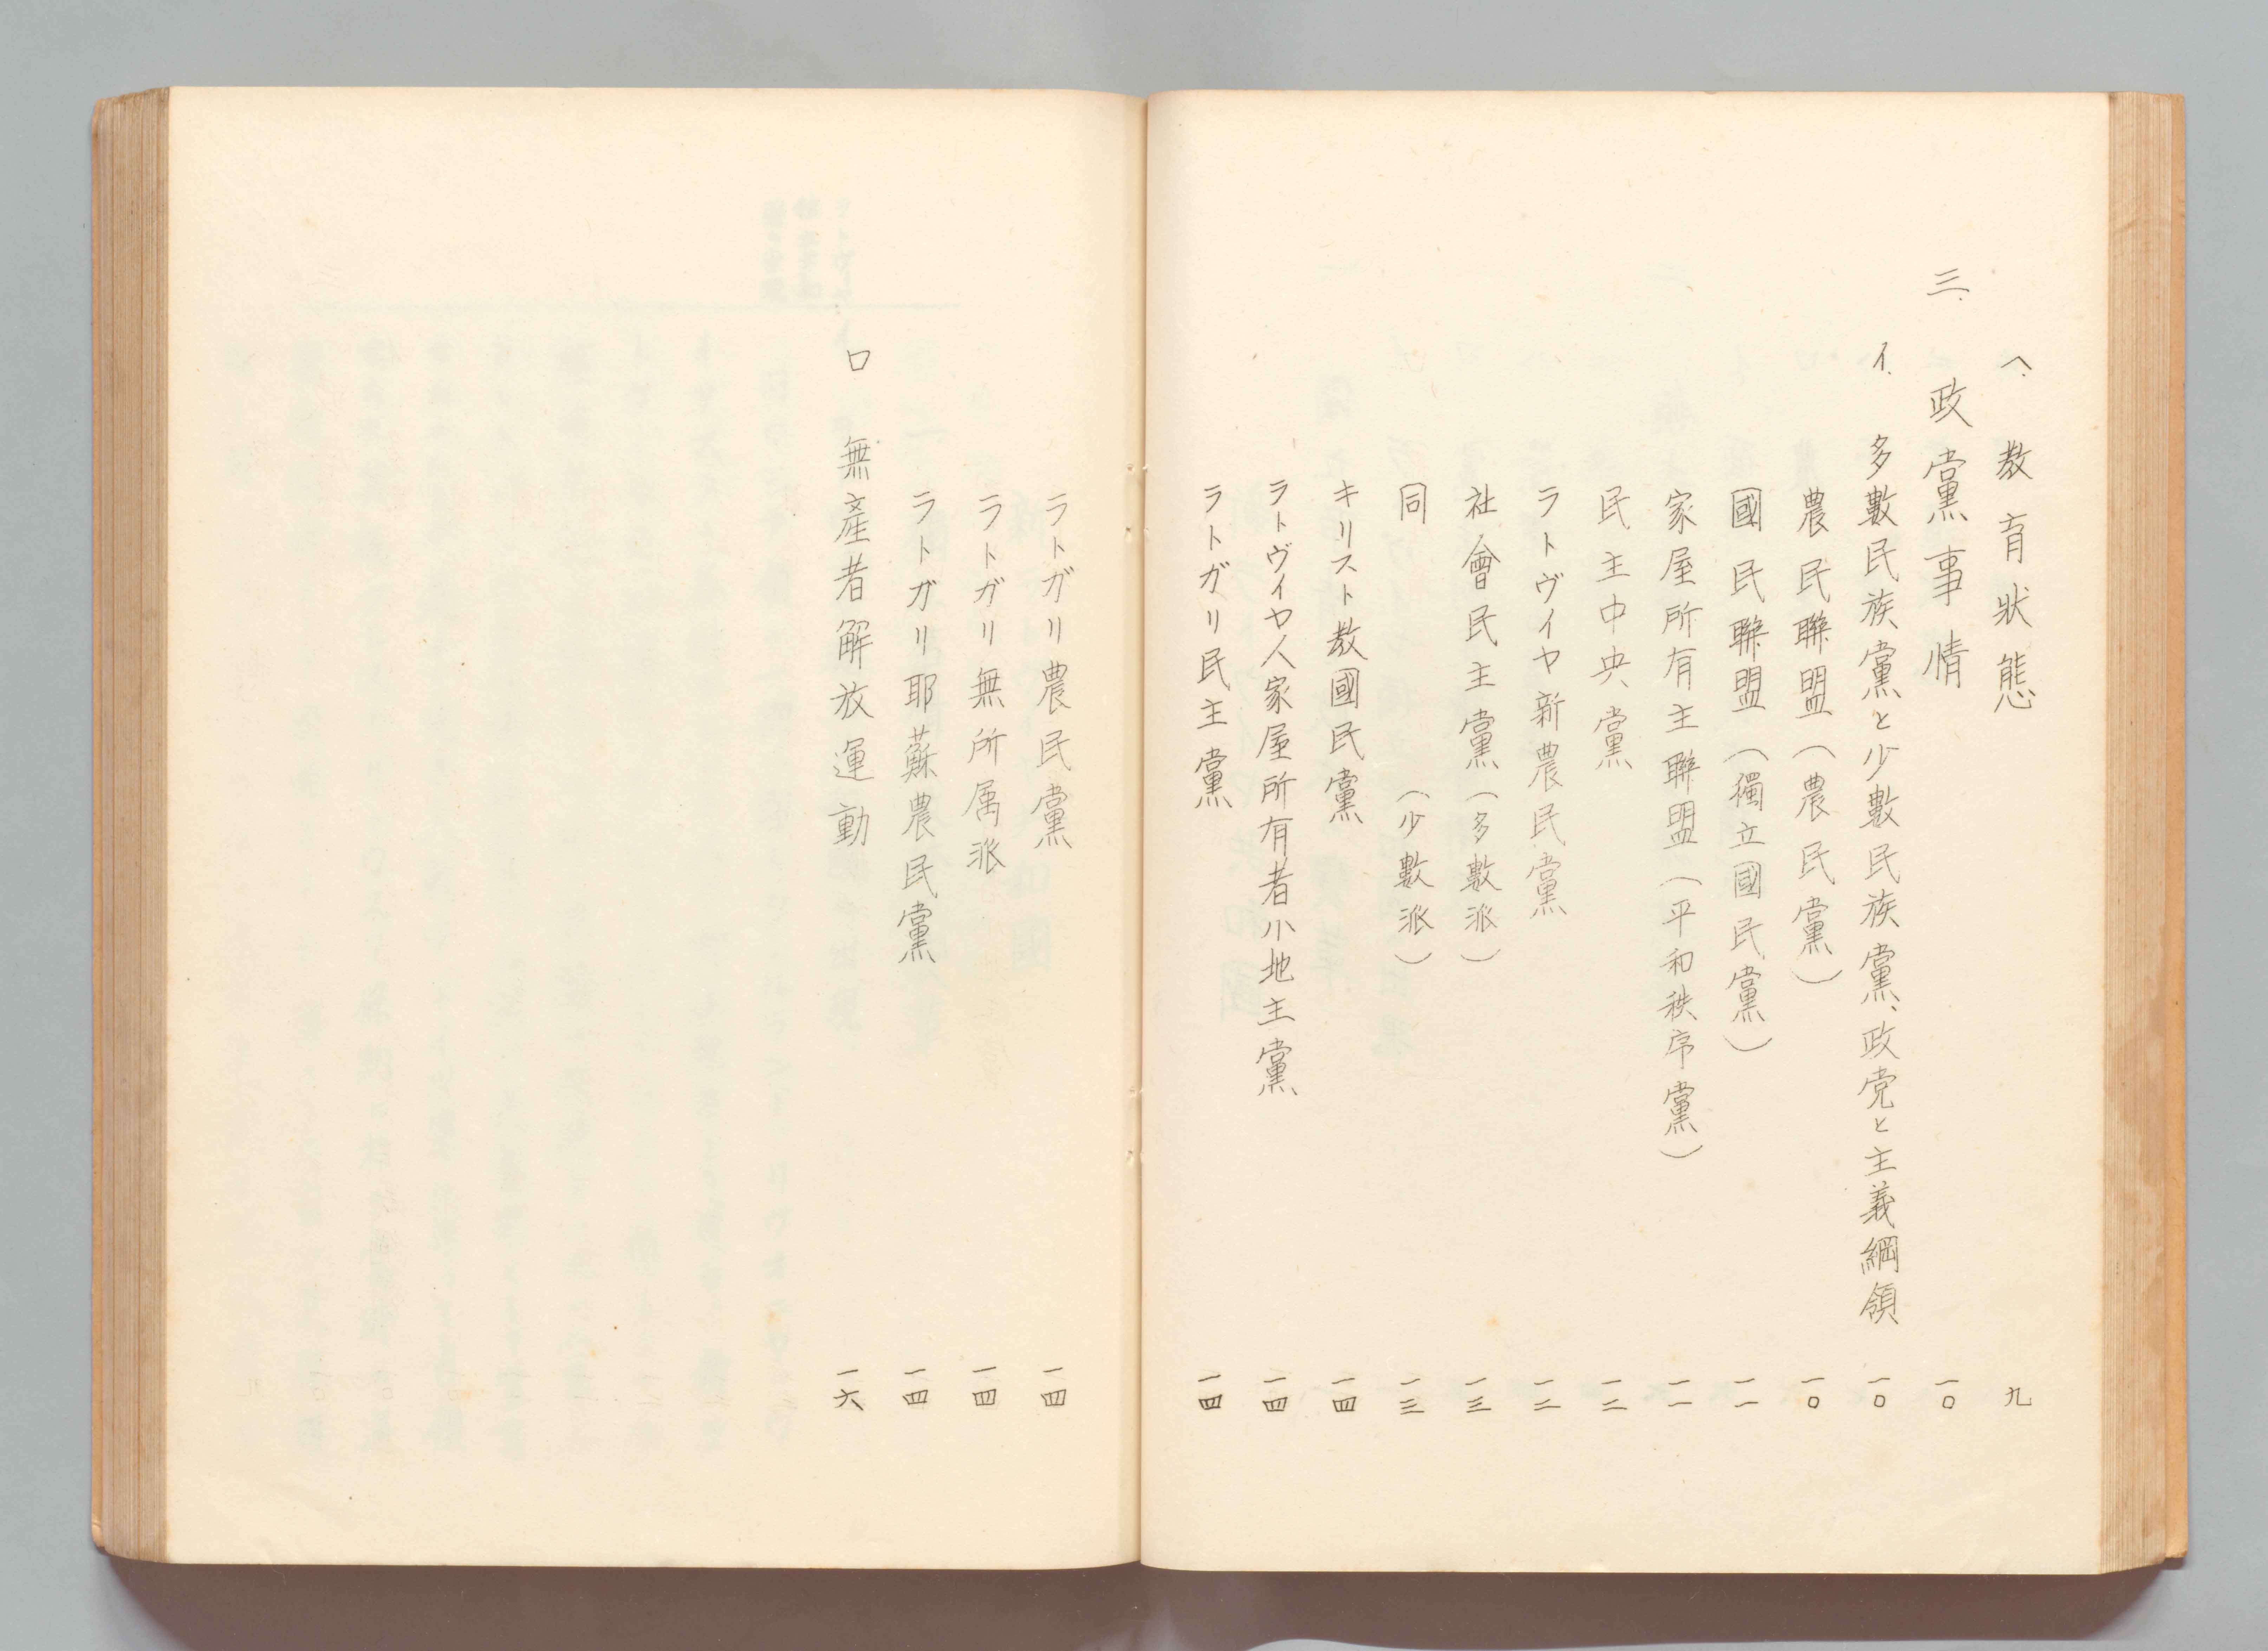 ヘ、教育狀態 九
三、政黨事情 一〇
イ、多數民族黨と少數民族黨、政党と主義綱領 一〇
農民聯盟（農民黨） 一〇
國民聯盟（獨立國民黨） 一一
家屋所有主聯盟（平和秩序黨） 一一
民主中央黨 一二
ラトヴイヤ新農民黨 一二
社會民主黨（多數派） 一三
同（少數派） 一三
キリスト教國民黨 一四
ラトヴイヤ人家屋所有者小地主黨 一四
ラトガリ民主黨 一四
ラトガリ農民黨 一四
ラトガリ無所属派 一四
ラトガリ耶蘇農民黨 一四
ロ 無產者解放運動 一六